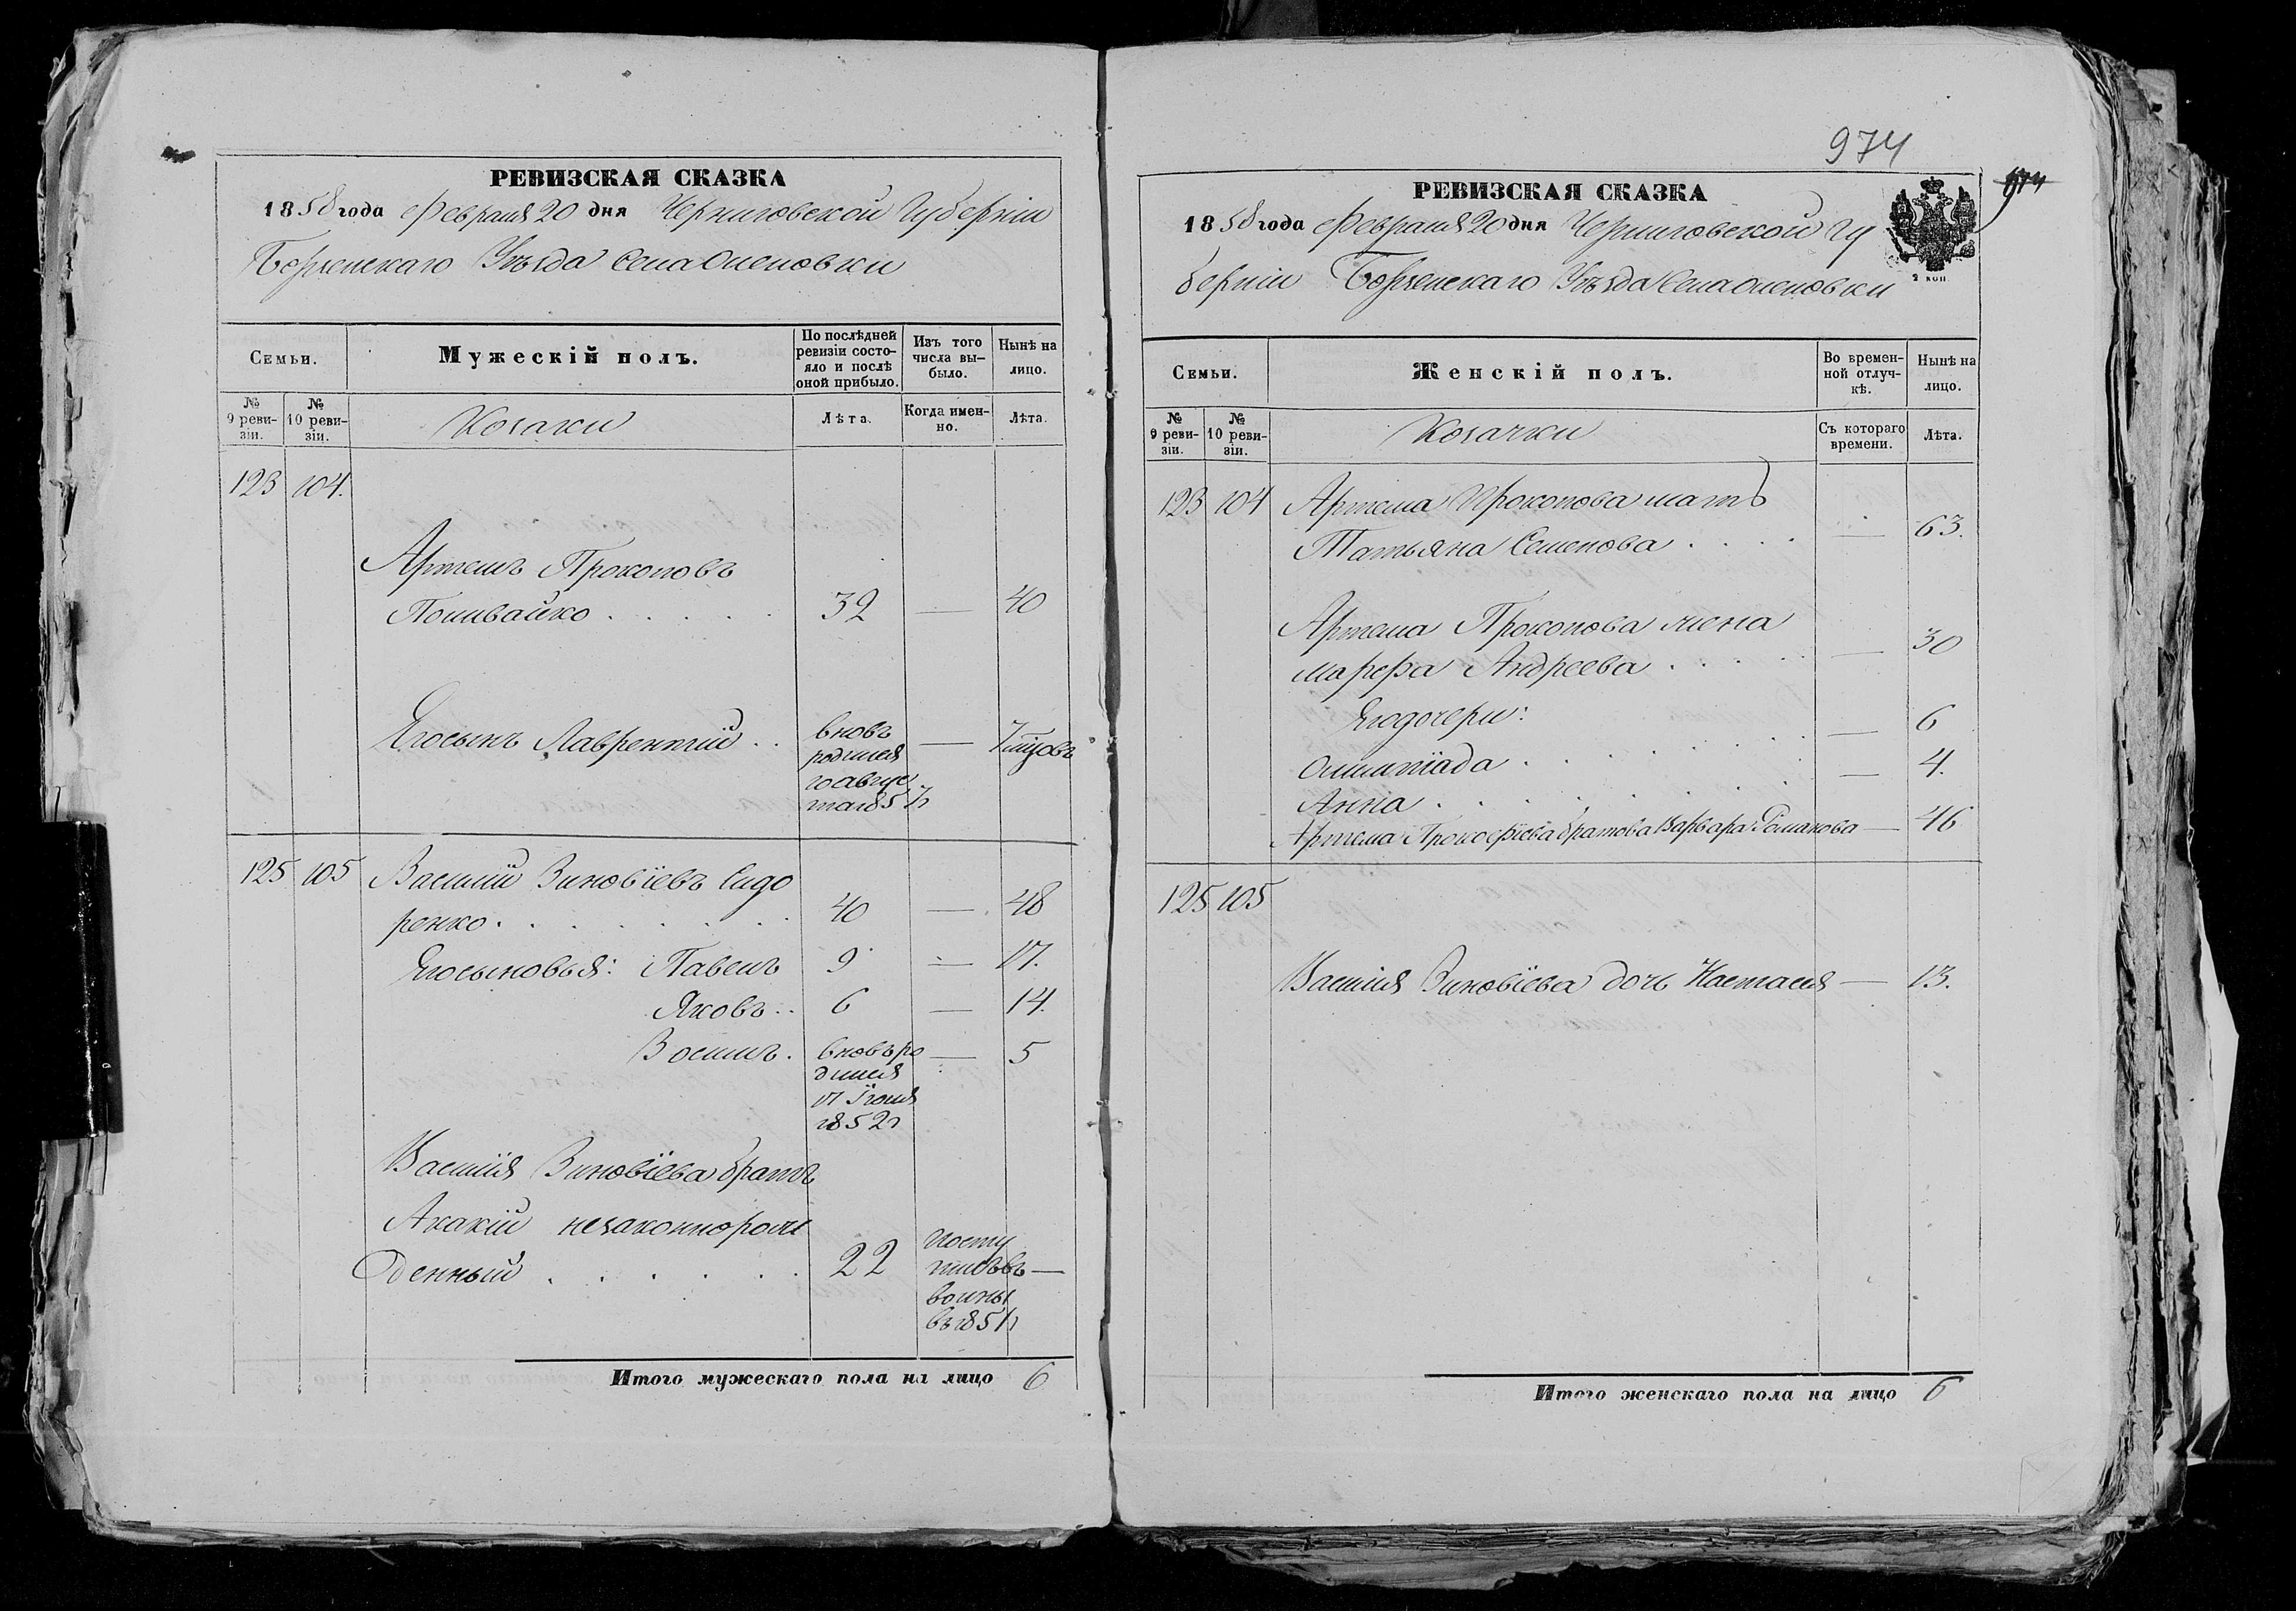 РЕВИЗСКАЯ СКАЗКА
1858 года Февраля 20 дня Черниговской Губерніи
Борзенскаго Уѣзда Села Оленовки
Семьи.
Мужескій полъ.
По послѣдней ревизіи состояло и послѣ оной прибыло.
Изъ того числа выбыло.
Нынѣ на лицо.
№ 9 ревизіи.
№ 10 ревизіи.
Козаки
Лѣта.
Когда именно.
Лѣта.
123 104.
Артемъ Прокоповъ
Поливайко . . . . . 32 — 40
Егосынъ Лаврентій . . вновь — 7 мцовъ
родился
10 Авгус
та 1857 г
125 105 Василій Зиновіевъ Сидо
ренко . . . . . . . 40 — 48
Егосыновья: Павелъ 9 — 17.
Яковъ . . 6 — 14.
Восилъ . вновь ро — 5
дился
17 Іюля
1852 г
Василія Зиновіева братъ
Акакій незаконнорож
денный . . . . . . 22 Посту —
пилъ въ
воины
въ 1851 г
Итого мужескаго пола на лицо 6
974
974
РЕВИЗСКАЯ СКАЗКА
1858 года Февраля 20 дня Черниговской Гу
берніи Борзенскаго Уѣзда Села Оленовки
2 коп
Семьи.
Женскій полъ.
Во временной отлучкѣ.
Нынѣ на лицо.
№ 9 ревизіи.
№ 10 ревизіи.
Козачки
Съ котораго времени.
Лѣта.
123 104 Артема Прокопова мать
Татьяна Семенова . . . . — 63.
Артема Прокопова жена
Марфа Андреева . . . . . — 30
Егодочери:
Олимпіада . . . . . . . — 6
Анна . . . . . . . — 4.
Артема Прокофіева братова Варвара Романова — 46
125 105
Василія Зиновіева дочь Настасія — 13.
Итого женскаго пола на лицо 6